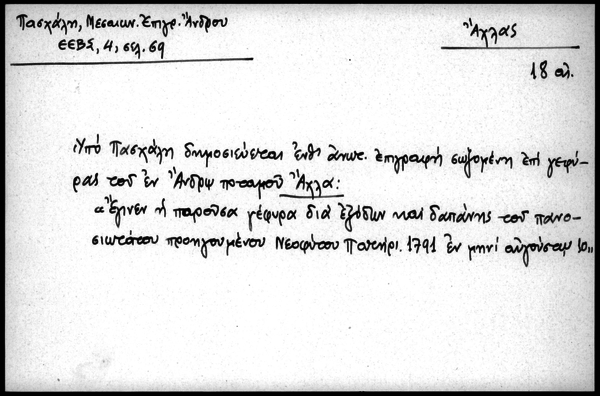 Πασχάλη, Μεσαιων. Ἐπιγρ. Ἄνδρου
ΕΕΒΣ, 4, σελ. 69
Ἄχλας
18 αἰ.
Ὑπό Πασχάλη δημοσιεύεται ἐνθ' ἀνωτ. ἐπιγραφή σωζομένη ἐπί γεφύ-
ρας τοῦ ἐν Ἄνδρῳ ποταμοῦ Ἄχλα:
"Ἔγινεν ἡ παροῦσα γέφυρα διά ἐξόδων καί δαπάνης τοῦ πανο-
σιωτάτου προηγουμένου Νεοφύτου 1791 ἐν μηνί αὐγούστῳ 10"